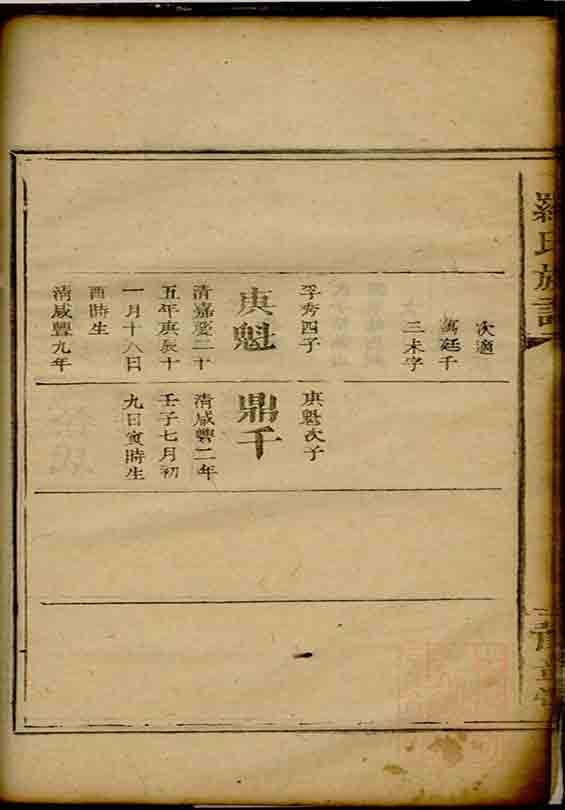 羅氏族譜
次適
萬廷千
三未字
孚秀四子
庚魁
清嘉慶二十
五年庚辰十
一月十八日
酉時生
清咸豐九年
庚魁次子
鼎千
清咸豐二年
壬子七月初
九日寅時生